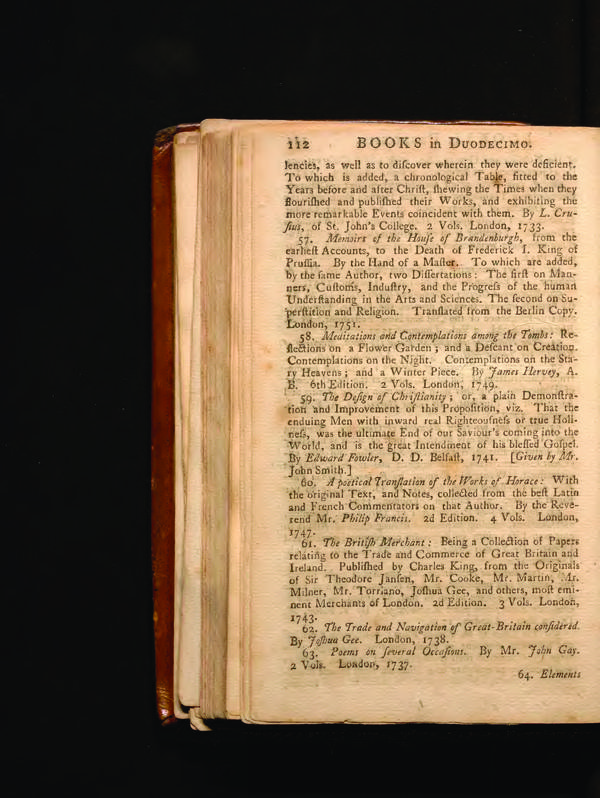 112 BOOKS in DUODECIMO.
lencies, as well as to diſcover wherein they were deficient.
To which is added, a chronological Table, fitted to the
Years before and after Chriſt, ſhewing the Times when they
flouriſhed and publiſhed their Works, and exhibiting the
more remarkable Events coincident with them. By L. Cru-
ſius, of St. John's College. 2 Vols. London, 1733.
57. Memoirs of the Houſe of Brandenburgh, from the
earlieſt Accounts, to the Death of Frederick I. King of
Pruſſia. By the Hand of a Maſter. To which are added,
by the ſame Author, two Diſſertations: The firſt on Man-
ners, Cuſtoms, Induſtry, and the Progreſs of the human
Underſtanding in the Arts and Sciences. The ſecond on Su-
perſtition and Religion. Tranſlated from the Berlin Copy.
London, 1751.
58. Meditations and Contemplations among the Tombs: Re-
flections on a Flower Garden; and a Deſcant on Creation.
Contemplations on the Night. Contemplations on the Sta-
ry Heavens; and a Winter Piece. By James Hervey, A.
B. 6th Edition. 2 Vols. London, 1749.
59. The Deſign of Chriſtianity; or, a plain Demonſtra-
tion and Improvement of this Propoſition, viz. That the
enduing Men with inward real Righteouſneſs or true Holi-
neſs, was the ultimate End of our Saviour's coming into the
World, and is the great Intendment of his bleſſed Goſpel.
By Edward Fowler, D. D. Belfaſt, 1741. [Given by Mr.
John Smith.]
60. A poetical Tranſlation of the Works of Horace: With
the original Text, and Notes, collected from the beſt Latin
and French Commentators on that Author. By the Reve-
rend Mr. Philip Francis. 2d Edition. 4 Vols. London,
1747.
61. The Britiſh Merchant: Being a Collection of Papers
relating to the Trade and Commerce of Great Britain and
Ireland. Publiſhed by Charles King, from the Originals
of Sir Theodore Janſen, Mr. Cooke, Mr. Martin, Mr.
Milner, Mr. Torriano, Joſhua Gee, and others, moſt emi-
nent Merchants of London. 2d Edition. 3 Vols. London,
1743.
62. The Trade and Navigation of Great-Britain conſidered.
By Joſhua Gee. London, 1738.
63. Poems on ſeveral Occaſions. By Mr. John Gay.
2 Vols. London, 1737.
64. Elements